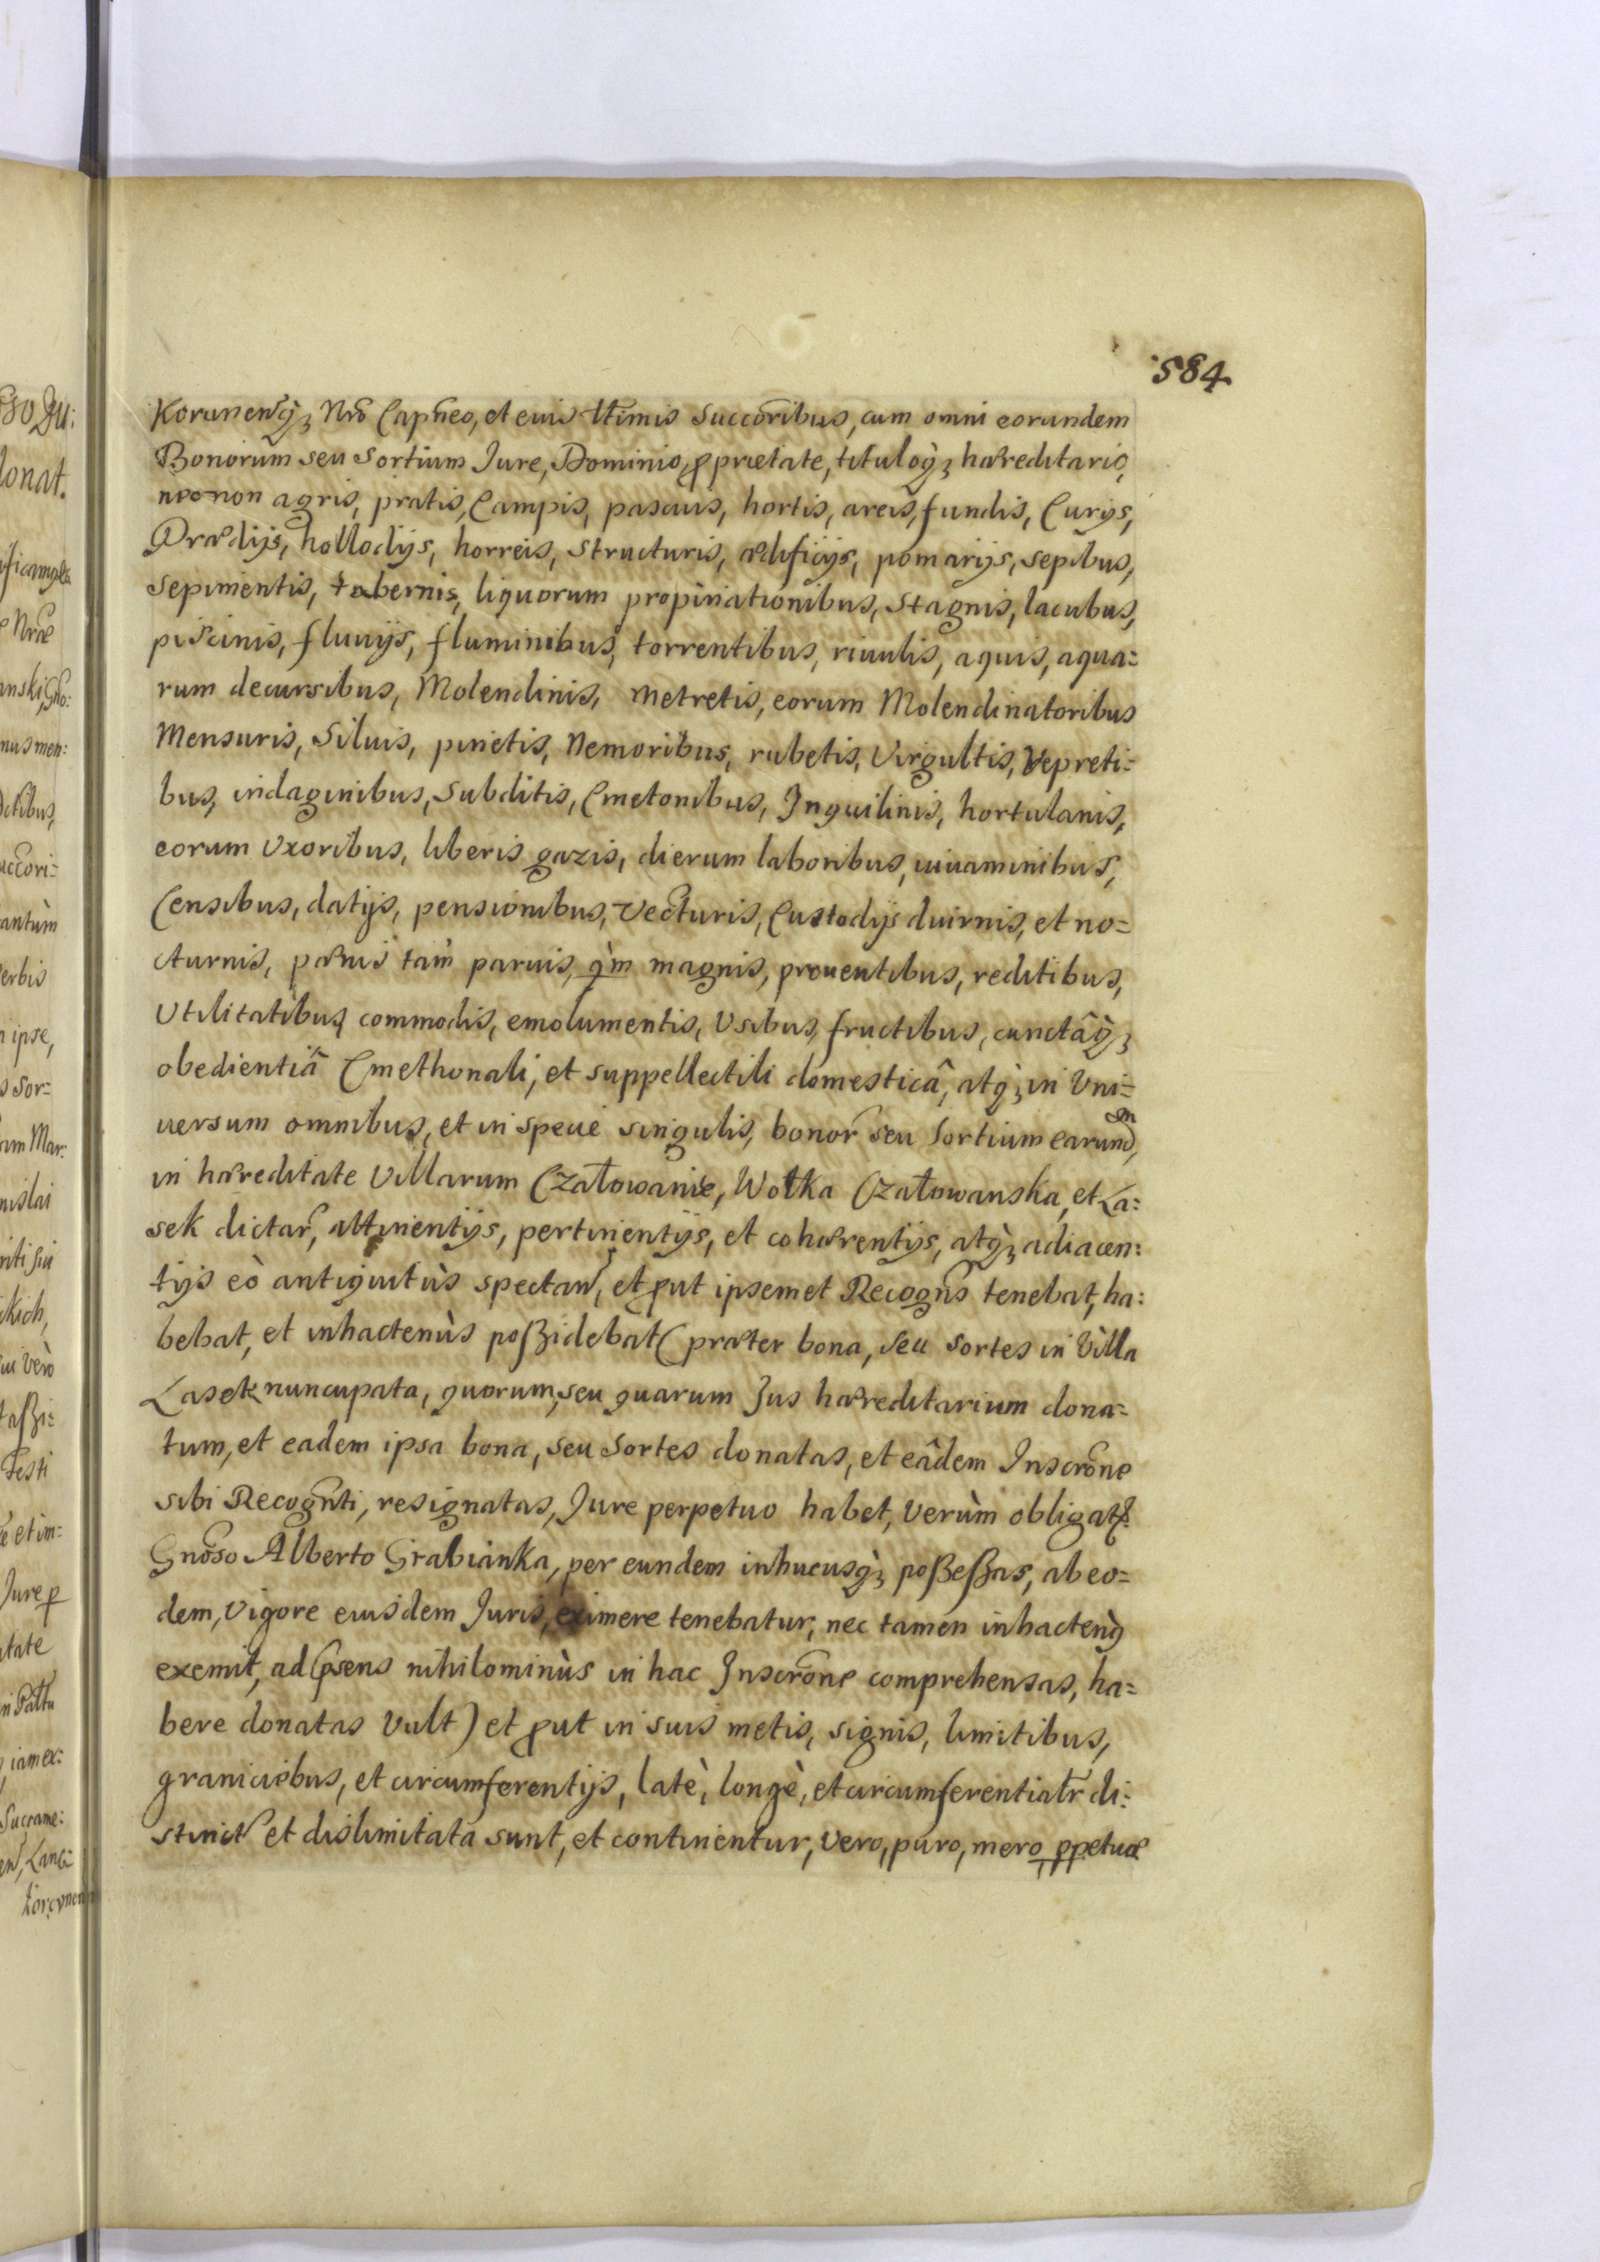 584
Korunensq́ꝫ Nrõ Capneo, et eius ltimis Succoribus, cum omni eorundem
Bonorum seu Sortium Jure, Dominio, ꝓprietate, tituloq́ꝫ hæreditario,
necnon agris, pratis, Campis, pascuis, hortis, areis, fundis, Curijs,
Prædijs, hollodijs, horreis, structuris, ædificijs, pomarijs, sepibus,
sepimentis, tabernis, liquorum propinationibus, Stagnis, lacubus,
piscinis, fluuijs, fluminibus, torrentibus, riuulis, aquis, aqua=
rum decursibus, Molendinis, metretis, eorum Molendinatoribus
Mensuris, Siluis, pinetis, Nemoribus, rubetis, Virgultis, Vepreti=
bus, indaginibus, Subditis, Cmetonibus, Inquilinis, hortulanis,
eorum Uxoribus, liberis gazis, dierum laboribus, iuuaminibus,
Censibus, datijs, pensionibus, Vecturis, Custodijs diurnis, et no=
cturnis, pænis tàm paruis, q̀m magnis, prouentibus, reditibus,
Utilitatibus, commodis, emolumentis, Usibus, fructibus, cunctâq́ꝫ
obedientiâ Cmethonali, et suppellectili domesticâ, atq́ꝫ in Uni=
uersum omnibus, et in specie singulis, bonor̃ seu Sortium earunde͂,
in hæreditate Villarum Czałowanie, Wolka Czałowanska, et La=
sek dictar̃, attinentijs, pertinentijs, et cohærentijs, atq́ꝫ adiacen=
tijs eò antiquitùs spectan̄, et ꝓut ipsemet Recogn̄s tenebat, ha=
bebat, et inhactenùs poßidebat (præter bona, seu sortes in Villa
Lasek nuncupata, quorum, seu quarum Jus hæreditarium dona=
tum, et eadem ipsa bona, seu Sortes donatas, et eâdem Inscrone
sibi Recogn̄ti, resignatas, Jure perpetuo habet, Verùm obligat̃.
Gnoso Alberto Grabianka, per eundem inhucusq́ꝫ poßeßas, ab eo=
dem, Vigore eiusdem Juris, eximere tenebatur, nec tamen inhactenq̀
exemit, ad p̃sens nihilominùs in hac Inscrone comprehensas, ha=
bere donatas Vult) et ꝓut in suis metis, signis, limitibus,
graniciebus, et circumferentijs, latè, longè, et circumferentialr̃ di=
stinct̃ et dislimitata sunt, et continentur, Vero, puro, mero, ꝑpetuæ